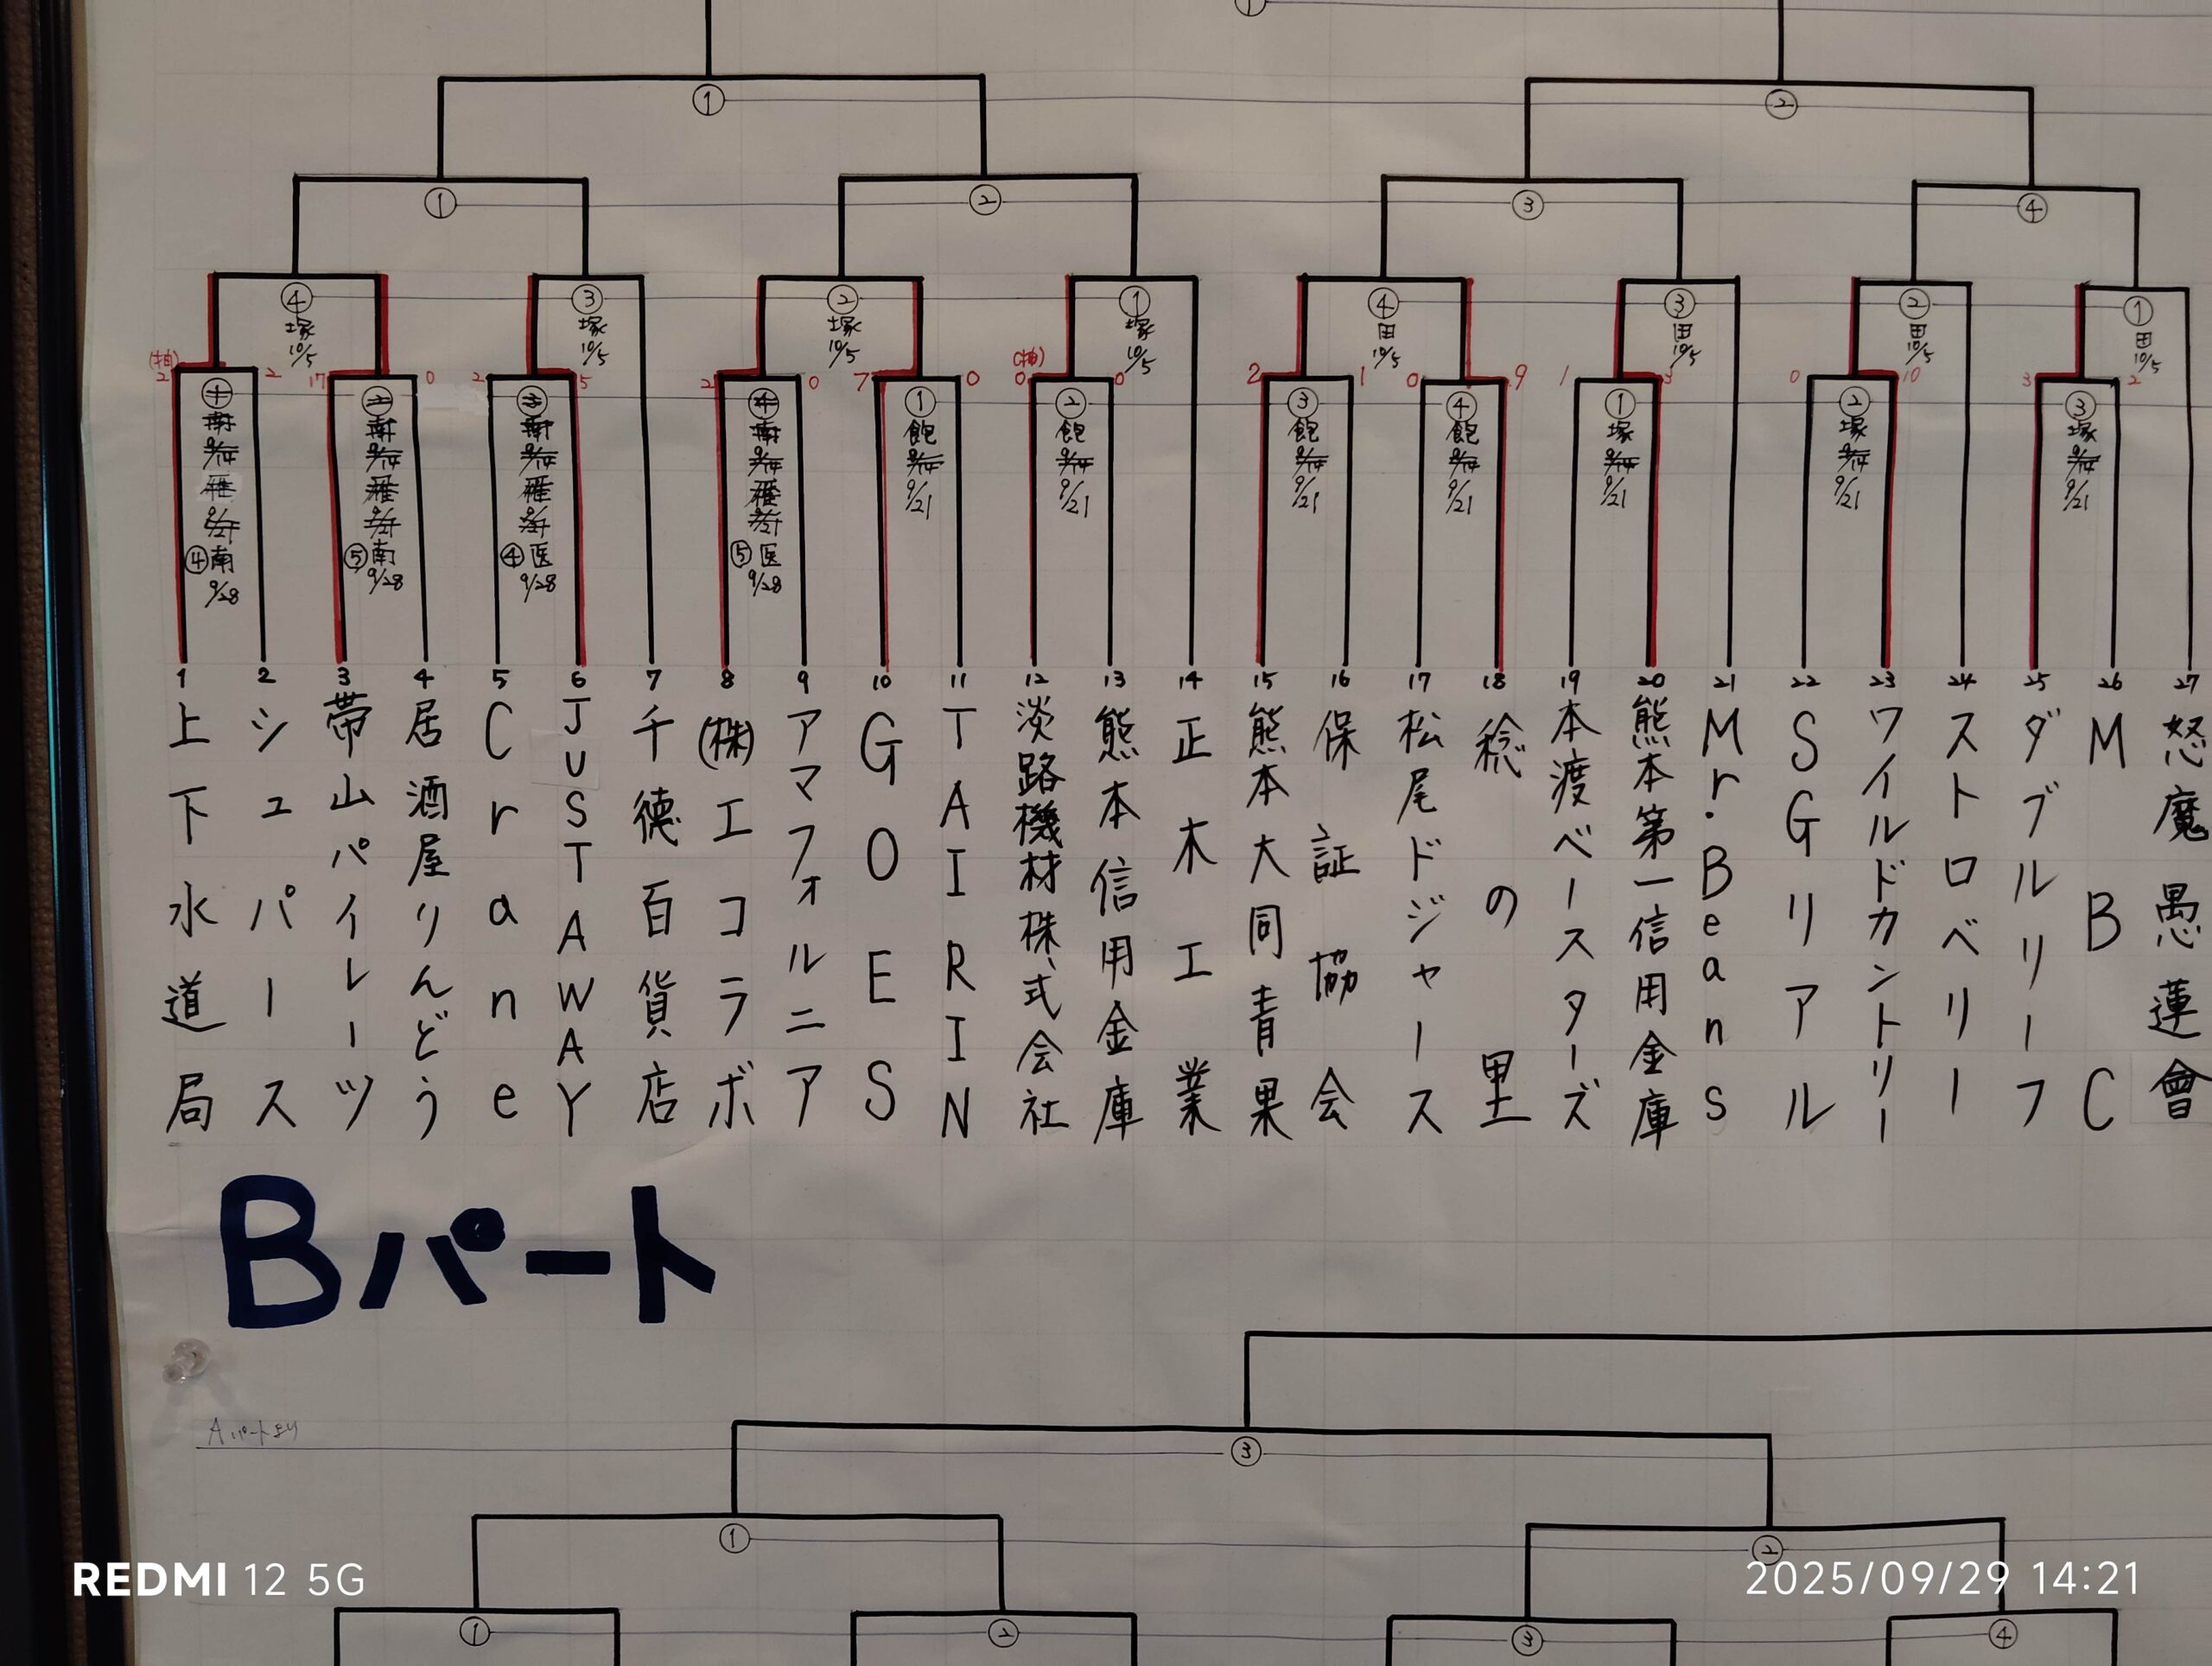 ①
②
①
②
③
④
④
塚
10/5
③
塚
10/5
②
塚
10/5
①
塚
10/5
④
田
10/5
③
田
10/5
②
田
10/5
①
田
10/5
(抽)
2 2
17 0
2 5
2 0
7 0
(抽)
0 0
2 1
0 9
1 3
0 10
3 2
① 南 9/14 雁 9/21 ④南 9/28
② 南 9/14 雁 9/21 ⑤南 9/28
③ 南 9/14 雁 9/21 ④医 9/28
④ 南 9/14 雁 9/21 ⑤医 9/28
① 飽 9/14 9/21
② 飽 9/14 9/21
③ 飽 9/14 9/21
④ 飽 9/14 9/21
① 塚 9/14 9/21
② 塚 9/14 9/21
③ 塚 9/14 9/21
1 上下水道局
2 シュパース
3 帯山パイレーツ
4 居酒屋りんどう
5 Crane
6 JUSTAWAY
7 千徳百貨店
8 (株)エコラボ
9 アマフォルニア
10 GOES
11 TAIRIN
12 淡路機材株式会社
13 熊本信用金庫
14 正木工業
15 熊本大同青果
16 保証協会
17 松尾ドジャース
18 稔の里
19 本渡ベースターズ
20 熊本第一信用金庫
21 Mr.Beans
22 SGリアル
23 ワイルドカントリー
24 ストロベリー
25 ダブルリーフ
26 MBC
27 怒魔愚蓮會
Bパート
Aパートより
③
①
②
①
②
③
④
REDMI 12 5G
2025/09/29 14:21